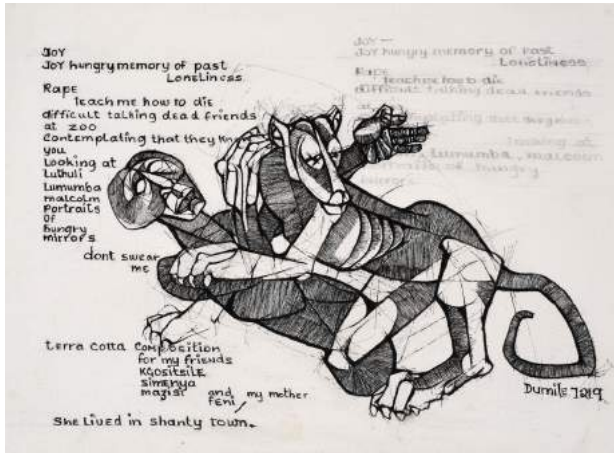 JOY
JOY hungry memory of past
Loneliness
Rape
teach me how to die
difficult talking dead friends
at zoo
Contemplating that they
you
Looking at
Luthuli
Lumumba
malcolm
Portraits
Of
hungry
mirrors
dont swear
me
terra cotta composition
for my friends
KGOSITSILE
simenya
mazisi and my mother
feni
She Lived in shanty town.
JOY —
JOY hungry memory of past
Loneliness
Rape
teach me how to die
difficult talking dead friends
at
Lumumba, malcolm
hungry
mirrors
Dumile